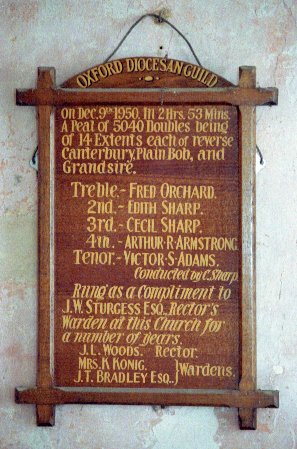 OXFORD DIOCESAN GUILD
On Dec. 9th 1950. In 2 Hrs. 53 Mins.
A Peal of 5040 Doubles being
of 14 Extents each of reverse
Canterbury, Plain Bob, and
Grandsire.
Treble.- FRED ORCHARD.
2nd.- EDITH SHARP.
3rd.- CECIL SHARP.
4th.- ARTHUR·R·ARMSTRONG.
Tenor.- VICTOR·S·ADAMS.
Conducted by C. Sharp.
Rung as a Compliment to
J.W. STURGESS ESQ., Rector's
Warden at this Church for
a number of years.
J.L. WOODS. Rector.
MRS. K KONIG. } Wardens.
J.T. BRADLEY ESQ.,